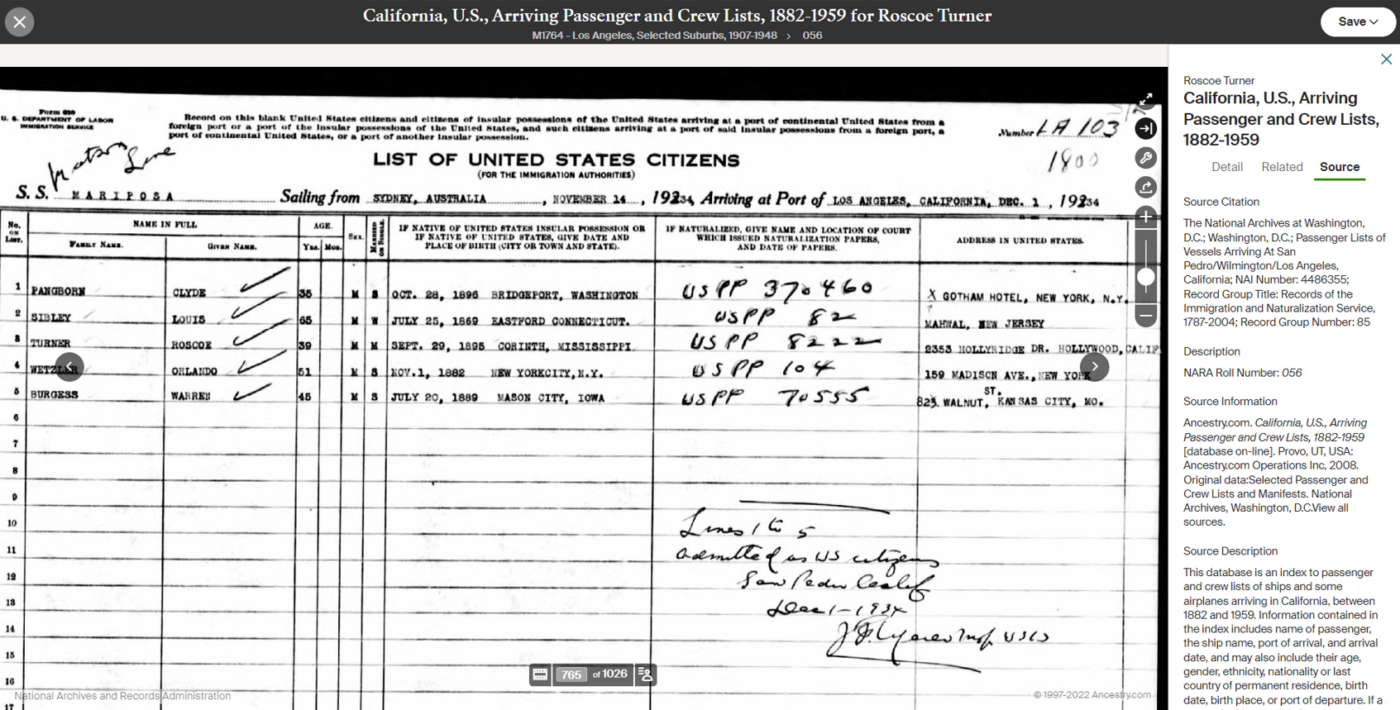 California, U.S., Arriving Passenger and Crew Lists, 1882-1959 for Roscoe Turner
M1764 - Los Angeles, Selected Suburbs, 1907-1948 > 056
Save
Form 630
U. S. DEPARTMENT OF LABOR
IMMIGRATION SERVICE
Record on this blank United States citizens and citizens of insular possessions of the United States arriving at a port of continental United States from a
foreign port or a port of the insular possessions of the United States, and such citizens arriving at a port of said insular possessions from a foreign port, a
port of continental United States, or a port of another insular possession.
Number LA 103
1800
Matson Line
LIST OF UNITED STATES CITIZENS
(FOR THE IMMIGRATION AUTHORITIES)
S. S. MARIPOSA Sailing from SYDNEY, AUSTRALIA, NOVEMBER 14, 1934, Arriving at Port of LOS ANGELES, CALIFORNIA, DEC. 1, 1934
No. ON LIST.
NAME IN FULL
FAMILY NAME. GIVEN NAME.
AGE.
Yrs. Mos.
SEX.
MARRIED OR SINGLE
IF NATIVE OF UNITED STATES INSULAR POSSESSION OR
IF NATIVE OF UNITED STATES, GIVE DATE AND
PLACE OF BIRTH (CITY OR TOWN AND STATE).
IF NATURALIZED, GIVE NAME AND LOCATION OF COURT
WHICH ISSUED NATURALIZATION PAPERS,
AND DATE OF PAPERS.
ADDRESS IN UNITED STATES.
1 PANGBORN CLYDE 38 M S OCT. 28, 1896 BRIDGEPORT, WASHINGTON USPP 370460 X GOTHAM HOTEL, NEW YORK, N.Y.
2 SIBLEY LOUIS 65 M W JULY 25, 1869 EASTFORD CONNECTICUT. USPP 82 MAHWAL, NEW JERSEY
3 TURNER ROSCOE 39 M M SEPT. 29, 1895 CORINTH, MISSISSIPPI USPP 8222 2353 HOLLYRIDGE DR. HOLLYWOOD, CALIF
4 WETZLER ORLANDO 51 M S NOV.1, 1882 NEW YORKCITY, N.Y. USPP 104 159 MADISON AVE., NEW YORK
5 BURGESS WARREN 45 M S JULY 20, 1889 MASON CITY, IOWA USPP 70555 823 WALNUT, ST. KANSAS CITY, MO.
6
7
8
9
10
11
12
13
14
15
16
17
Lines 1 to 5
admitted as US citizens
San Pedro Calif
Dec 1-1934
765 of 1026
National Archives and Records Administration
© 1997-2022 Ancestry.com
Roscoe Turner
California, U.S., Arriving
Passenger and Crew Lists,
1882-1959
Detail Related Source
Source Citation
The National Archives at Washington,
D.C.; Washington, D.C.; Passenger Lists of
Vessels Arriving At San
Pedro/Wilmington/Los Angeles,
California; NAI Number: 4486355;
Record Group Title: Records of the
Immigration and Naturalization Service,
1787-2004; Record Group Number: 85
Description
NARA Roll Number: 056
Source Information
Ancestry.com. California, U.S., Arriving
Passenger and Crew Lists, 1882-1959
[database on-line]. Provo, UT, USA:
Ancestry.com Operations Inc, 2008.
Original data:Selected Passenger and
Crew Lists and Manifests. National
Archives, Washington, D.C.View all
sources.
Source Description
This database is an index to passenger
and crew lists of ships and some
airplanes arriving in California, between
1882 and 1959. Information contained in
the index includes name of passenger,
the ship name, port of arrival, and arrival
date, and may also include their age,
gender, ethnicity, nationality or last
country of permanent residence, birth
date, birth place, or port of departure. If a